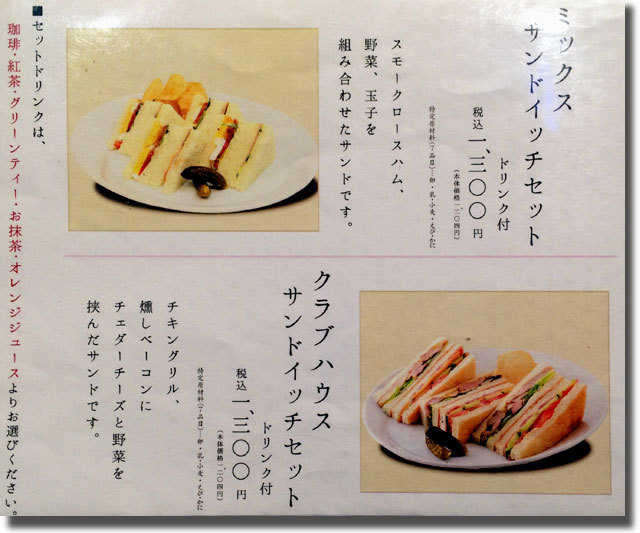 ミックス
サンドイッチセット
ドリンク付
税込 一、三〇〇円
(本体価格一、二〇四円)
特定原材料(7品目)…卵・乳・小麦・えび・かに
スモークロースハム、
野菜、玉子を
組み合わせたサンドです。
クラブハウス
サンドイッチセット
ドリンク付
税込 一、三〇〇円
(本体価格一、二〇四円)
特定原材料(7品目)…卵・乳・小麦・えび・かに
チキングリル、
燻しベーコンに
チェダーチーズと野菜を
挟んだサンドです。
■セットドリンクは、
珈琲・紅茶・グリーンティー・お抹茶・オレンジジュースよりお選びください。